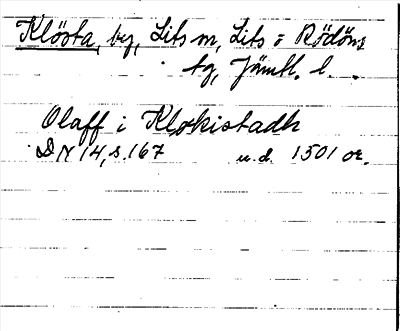 Klösta, by, Lits sn, Lits o Rödöns
tg, Jämtl. l.
Olaff i Klokistadh
DN 14, s. 167 u.d. 1501 or.